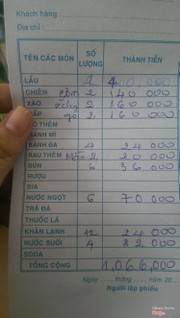 Khách hàng :
Địa chỉ :
TÊN CÁC MÓN SỐ LƯỢNG THÀNH TIỀN
LẨU 2
CHIÊN cơm 2 140 000
XÀO 2 160 000
2 160 000
ĐỒ THÊM
BÁNH MÌ
BÁNH ĐA 4 24 000
RAU THÊM 2 20 000
BÚN 6 36 000
RƯỢU
BIA
NƯỚC NGỌT 6 70 000
TRÀ ĐÁ
THUỐC LÁ
KHĂN LẠNH 12 24 000
NƯỚC SUỐI 4 32 000
SODA
TỔNG CỘNG 1,066,000
Ngày ..... tháng ..... năm 20
Người lập phiếu